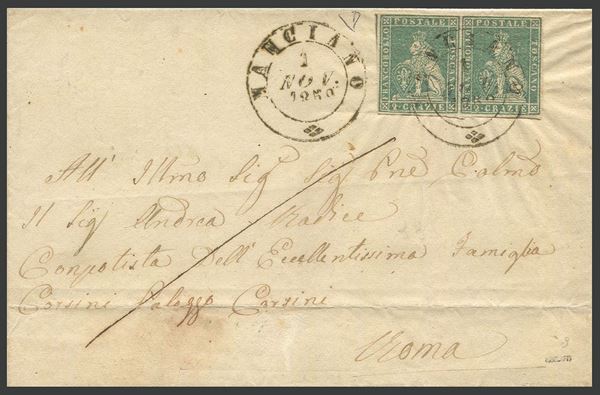 MANCIANO
1
NOV.
FRANCOBOLLO POSTALE TOSCANO
FRANCOBOLLO POSTALE TOSCANO
GRAZIE
GRAZIE
All' Illmo Sig Sig Pne Colmo
Il Sig Andrea Radice
Conpotista Dell' Eccellentissima Famiglia
Corsini Palazzo Corsini
Roma